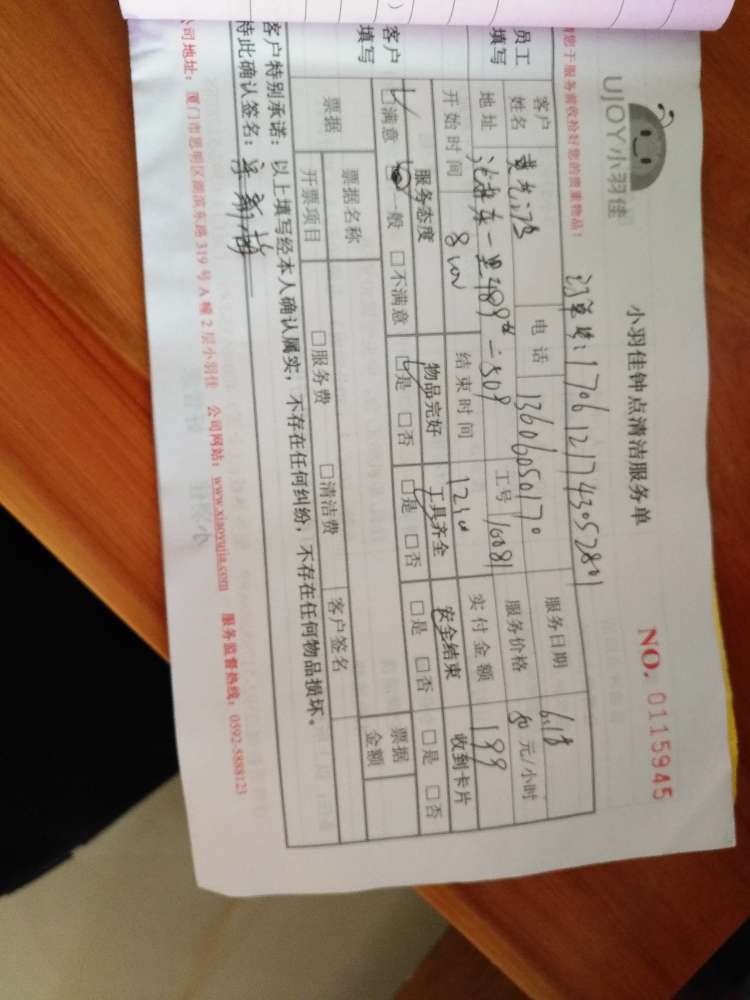 UJOY小羽佳
小羽佳钟点清洁服务单
NO. 0115945
您于服务前收拾好您的贵重物品!
1706121743052801
员工填写 客户姓名 电话 13606050170 服务日期 6.18
地址 一里489 工号 10081 服务价格 50 元/小时
开始时间 8:00 结束时间 1210 实付金额 199
客户填写 服务态度 物品完好 工具齐全 安全结束 收到卡片
☑满意 □一般 □不满意 ☑是 □否 ☑是 □否 □是 □否 □是 □否
票据 票据名称 票据金额
开票项目 □服务费 □清洁费 客户签名
客户特别承诺:以上填写经本人确认属实,不存在任何纠纷,不存在任何物品损坏。
特此确认签名:
公司地址:厦门市思明区湖滨东路 319 号 A 幢 2 层小羽佳 公司网站:www.xiaoyujia.com 服务监督热线:0592-5888123